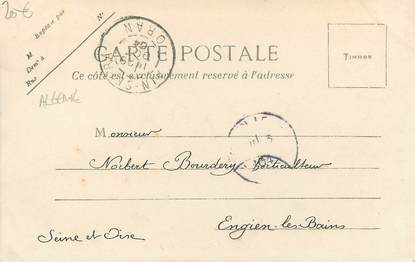 20€
Exposé par
N°
M
Dem^t à
Rue
ALGERIE
CARTE POSTALE
Ce côté est exclusivement réservé à l'adresse
TIMBRE
ORAN
Monsieur
Norbert Bourdery horticulteur
Engien-les-Bains
Seine et Oise